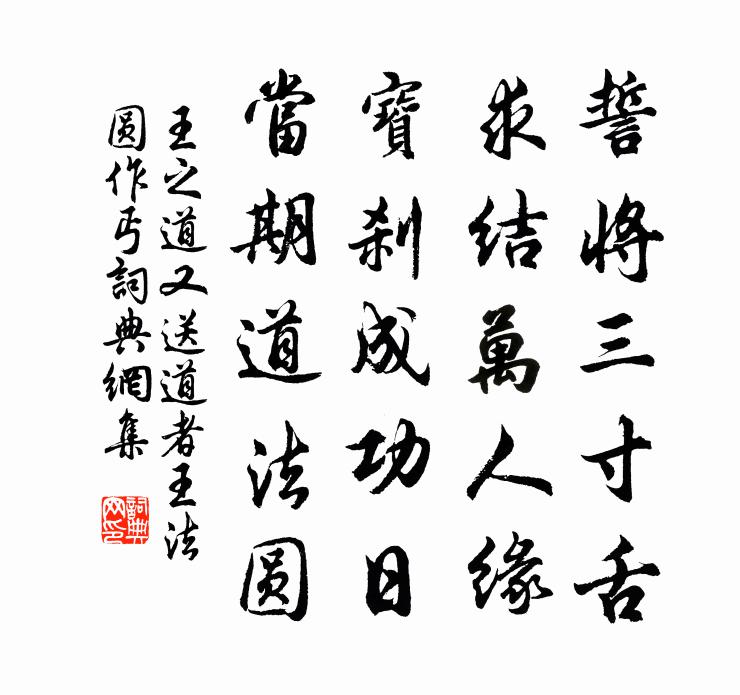 誓將三寸舌
求結萬人緣
寶剎成功日
當期道法圓
王之道又送道者王法
圓作丐詞典網集
詞典
网印